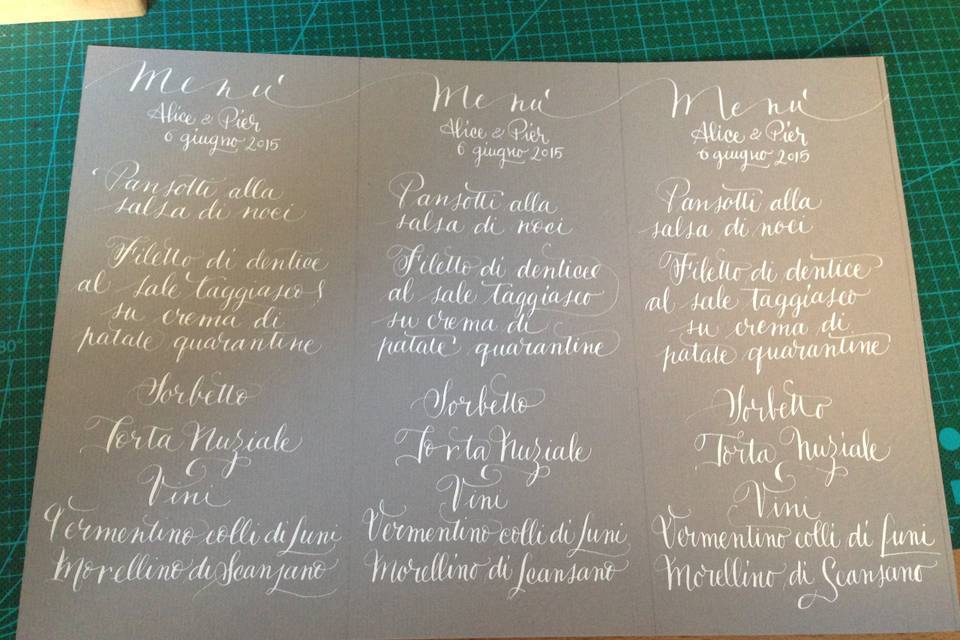 Menù
Alice & Pier
6 giugno 2015
Pansotti alla
salsa di noci
Filetto di dentice
al sale taggiasco
su crema di
patate quarantine
Sorbetto
Torta Nuziale
Vini
Vermentino colli di Luni
Morellino di Scansano
Menù
Alice & Pier
6 giugno 2015
Pansotti alla
salsa di noci
Filetto di dentice
al sale taggiasco
su crema di
patate quarantine
Sorbetto
Torta Nuziale
Vini
Vermentino colli di Luni
Morellino di Scansano
Menù
Alice & Pier
6 giugno 2015
Pansotti alla
salsa di noci
Filetto di dentice
al sale taggiasco
su crema di
patate quarantine
Sorbetto
Torta Nuziale
Vini
Vermentino colli di Luni
Morellino di Scansano